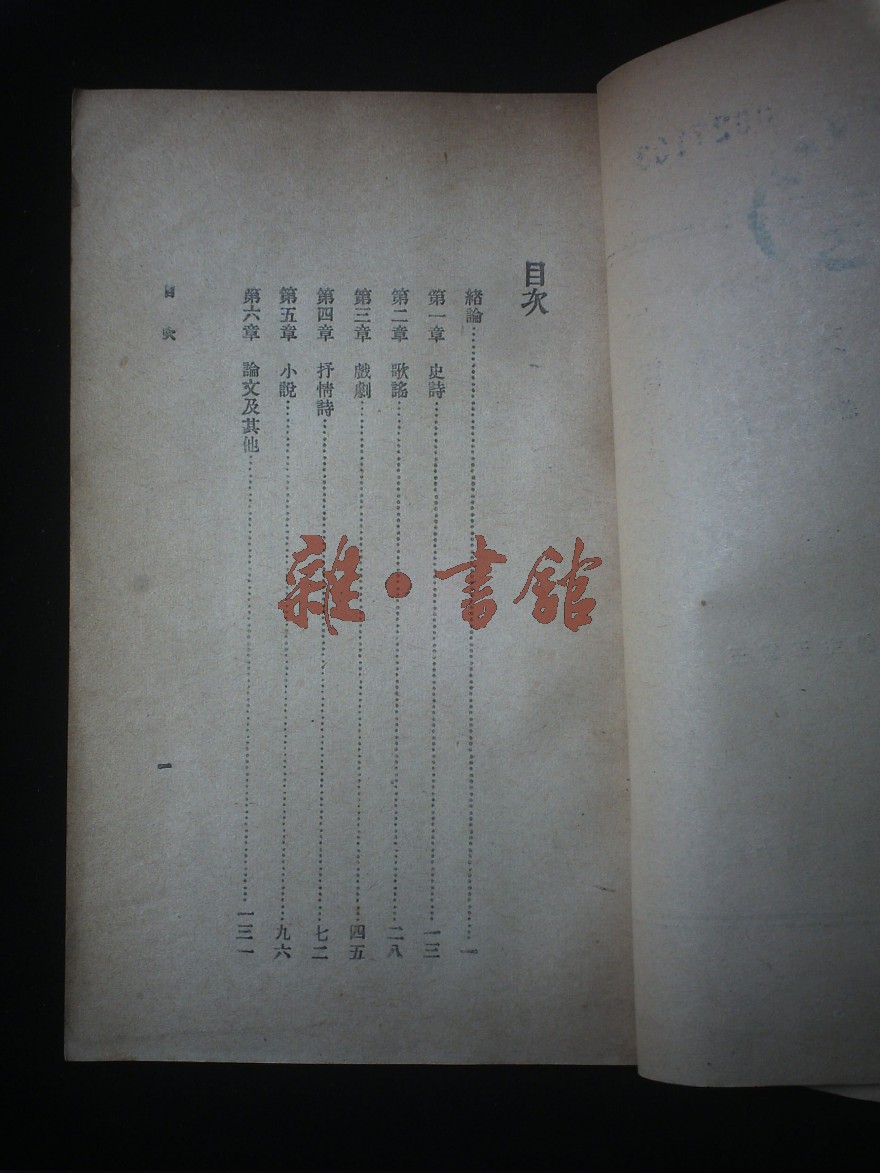 目次
緒論……一
第一章 史詩……一三
第二章 歌謠……二八
第三章 戲劇……四五
第四章 抒情詩……七二
第五章 小說……九六
第六章 論文及其他……一三一
目次
一
雜·書館